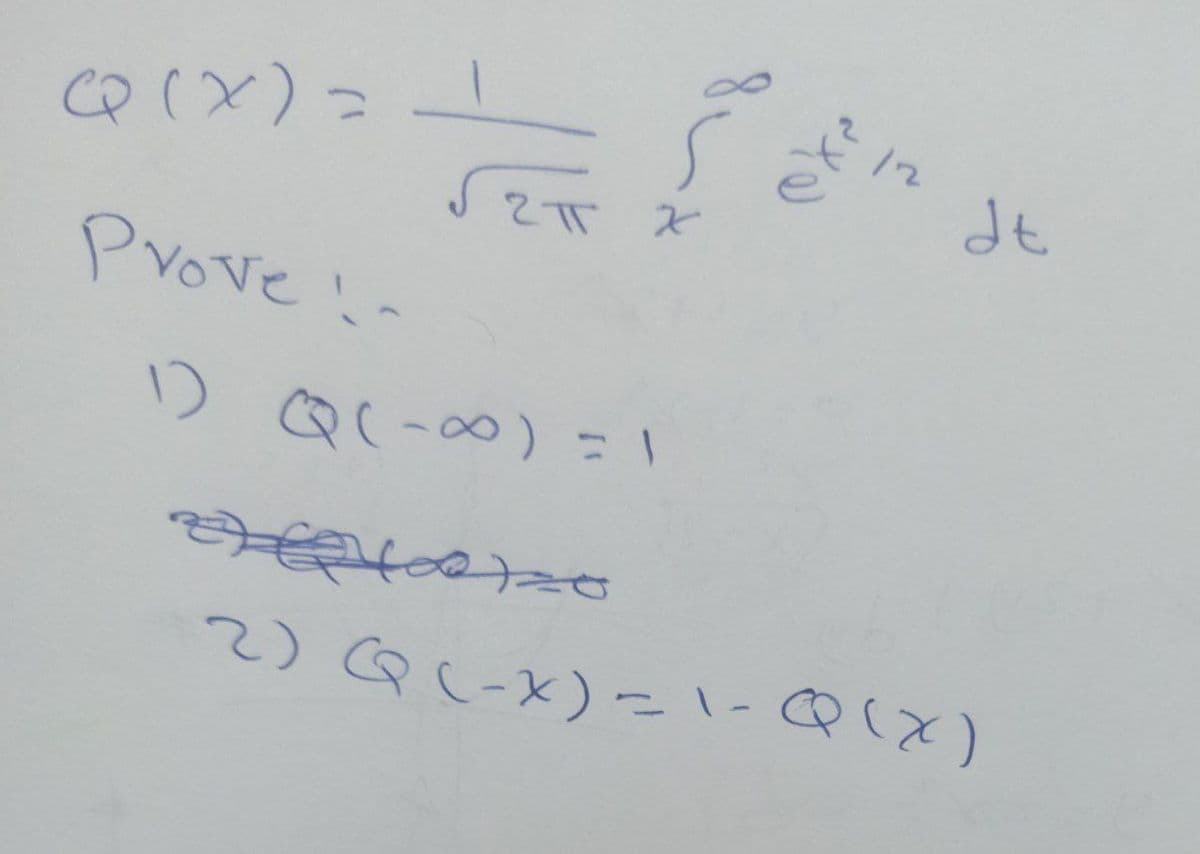 Q(x) = 1/√2π ∫_x^∞ e^{-t²/2} dt
Prove :-
1) Q(-∞) = 1
2) Q(∞) = 0
2) Q(-x) = 1 - Q(x)